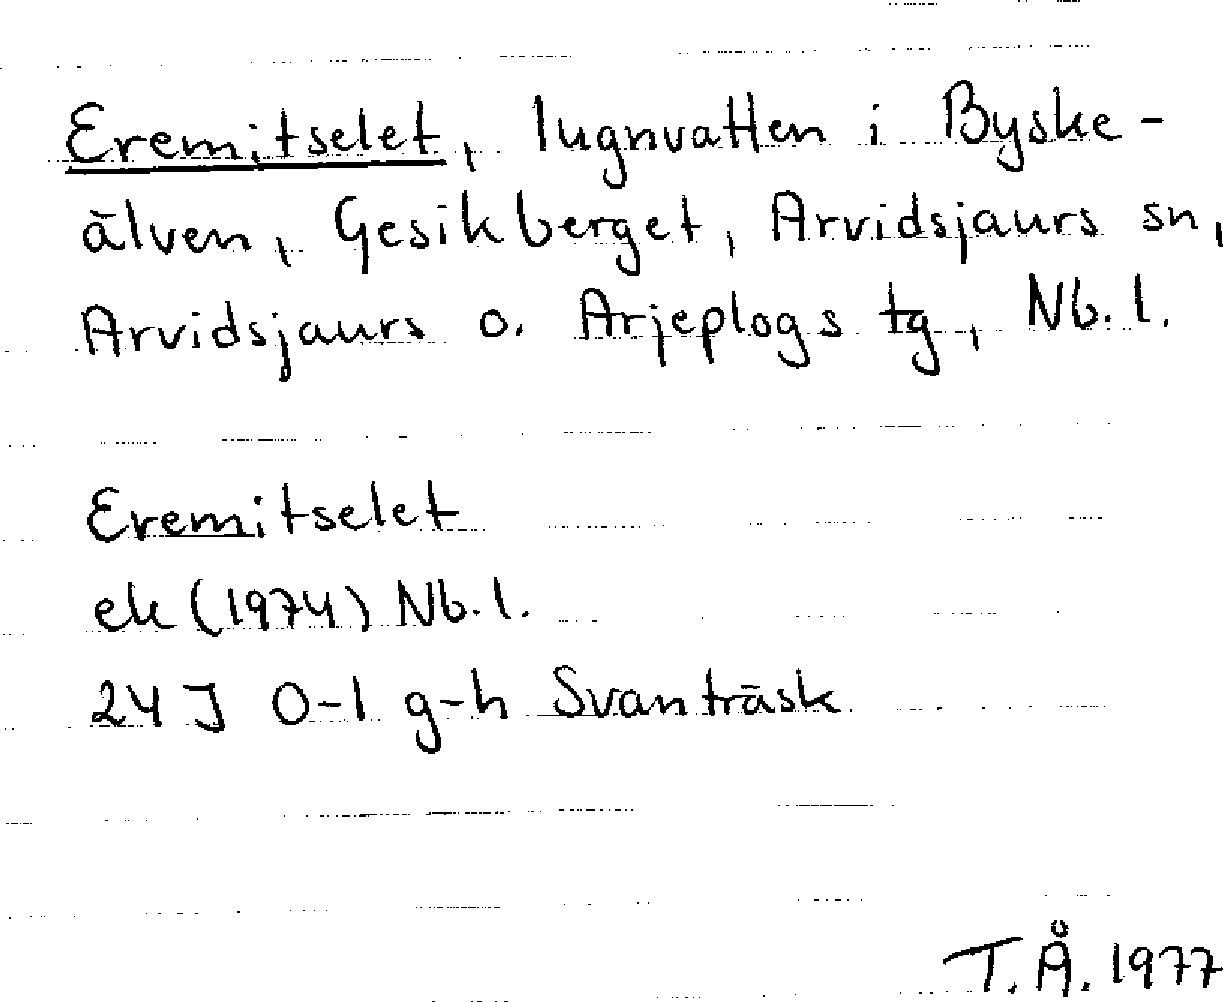 Eremitselet, lugnvatten i Byske-
älven, Gesikberget, Arvidsjaurs sn,
Arvidsjaurs o. Arjeplogs tg, Nb. l.
Eremitselet
ek (1974) Nb. l.
24 J 0-1 g-h Svanträsk
T. Å. 1977